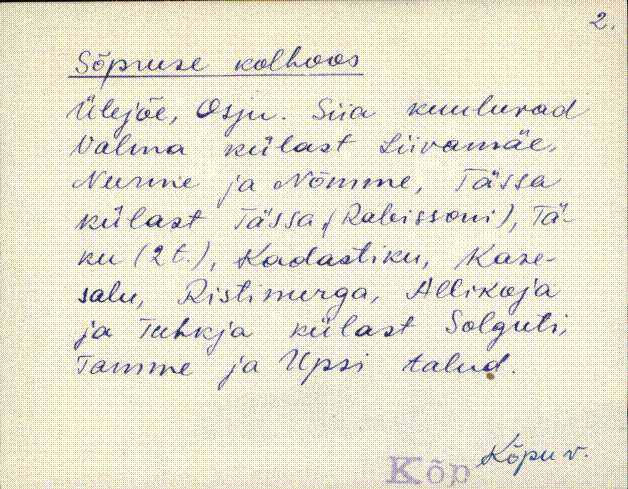 2.
Sõpruse kolhoos
Ülejõe, Osju. Siia kuuluvad
Valma külast Liivamäe,
Nurme ja Nõmme, Tässa
külast Tässa, (Robissoni), Tä-
ku (2 t.), Kadastiku, Kase-
salu, Ristimurga, Allikoja
ja Tuhkja külast Solguti,
Tamme ja Upsi talud.
Kõp Kõpu v.